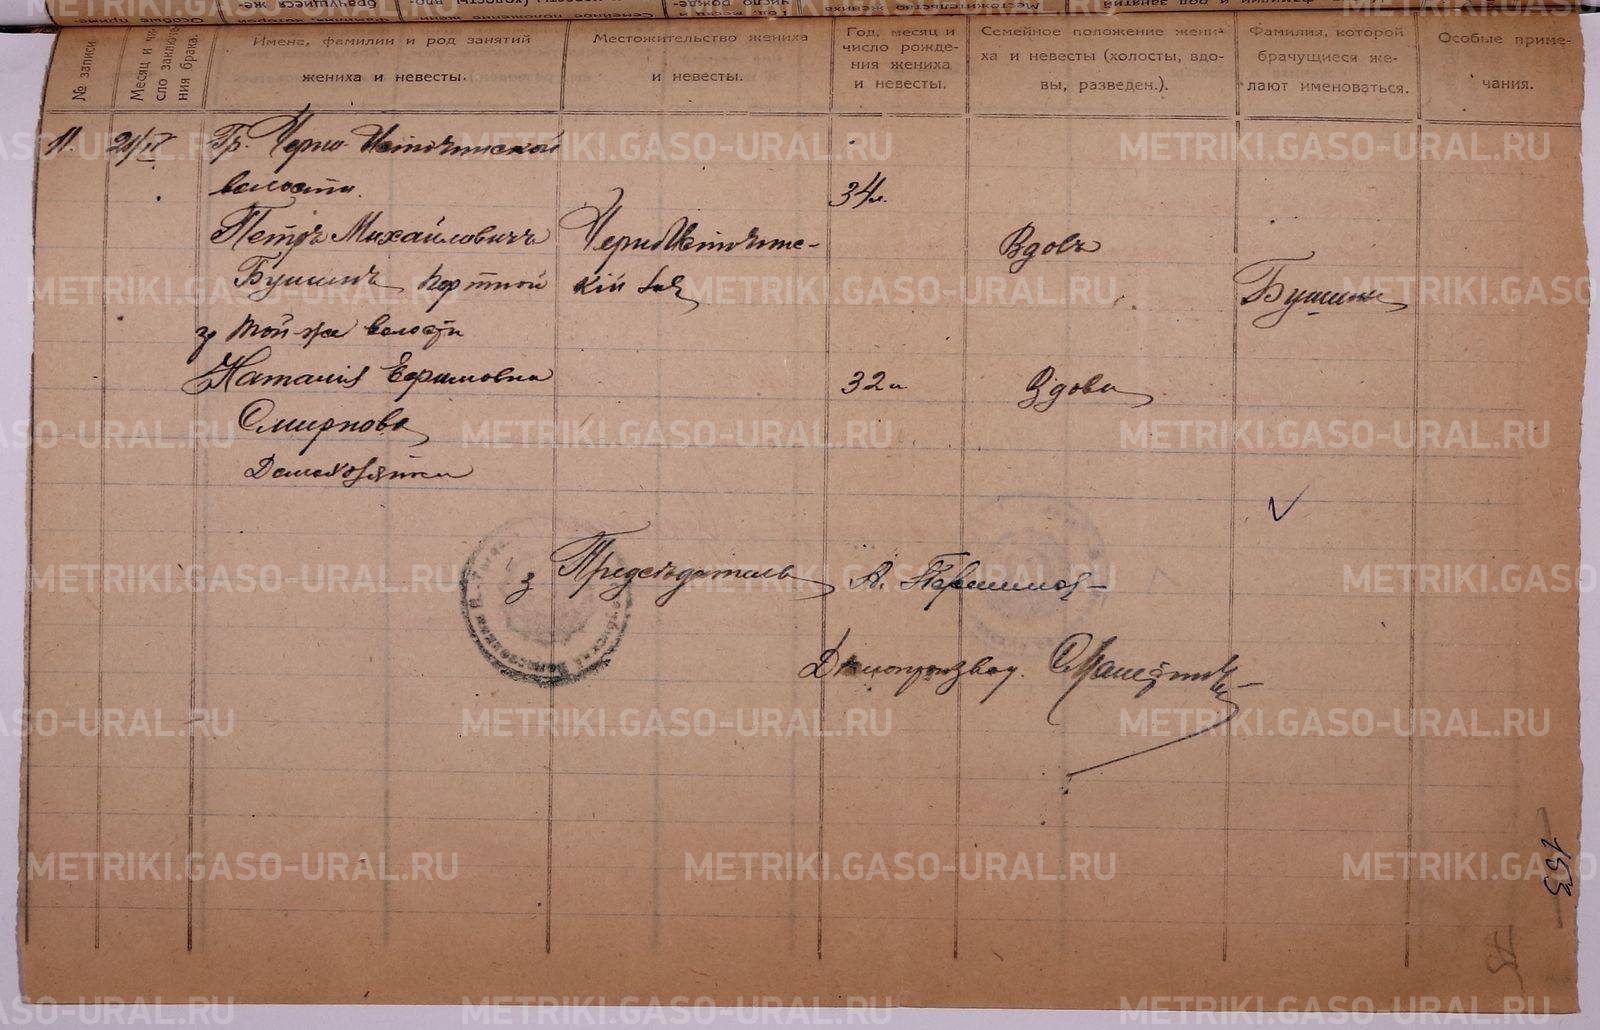 № записи
Месяц и чи-
сло заключе-
ния брака.
Имена, фамилии и род занятий
жениха и невесты.
Местожительство жениха
и невесты.
Год, месяц и
число рожде-
ния жениха
и невесты.
Семейное положение жени-
ха и невесты (холосты, вдо-
вы, разведен.).
Фамилия, которой
брачущиеся же-
лают именоваться.
Особые приме-
чания.
11.
Гр. Черно-Источинской
волости.
34 л.
Петръ Михайловичъ
Черно Источинс-
Вдовъ
Бушинъ портной
кій
Бушины
той-же волости
Наталія Ефимовна
32
Вдова
Смирнова
Домохозяйка
Председатель
Делопроизвод.
153
METRIKI.GASO-URAL.RU